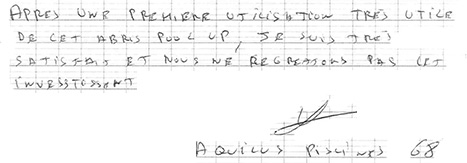 APRES UNE PREMIERE UTILISATION TRES UTILE
DE CET ABRIS POOL UP, JE SUIS TRES
SATISFAIT ET NOUS NE REGRETTONS PAS CET
INVESTISSEMENT
AQUILUS PISCINES 68